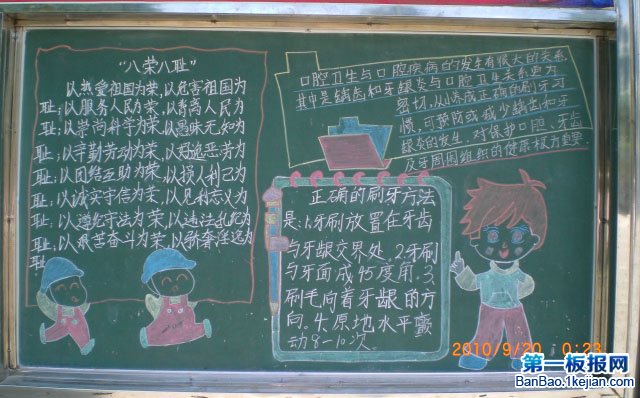 "八荣八耻"
以热爱祖国为荣,以危害祖国为
耻;以服务人民为荣,以背离人民为
耻;以崇尚科学为荣,以愚昧无知为
耻;以辛勤劳动为荣,以好逸恶劳为
耻;以团结互助为荣,以损人利己为
耻;以诚实守信为荣,以见利忘义为
耻;以遵纪守法为荣,以违法乱纪为
耻;以艰苦奋斗为荣,以骄奢淫逸为
耻
口腔卫生与口腔疾病的发生有很大的关系,
其中是龋齿和牙龈炎与口腔卫生关系更为
密切,从小养成正确的刷牙习
惯,可预防或减少龋齿和牙
龈炎的发生,对保护口腔、牙齿
及牙周围组织的健康极为重要.
正确的刷牙方法
是:1.牙刷放置在牙齿
与牙龈交界处.2.牙刷
与牙面成45度角.3.
刷毛向着牙龈的方
向.4.原地水平颤
动8-10次.
2010/9/20 0:23
第一板报网
BanBao.1kejian.com